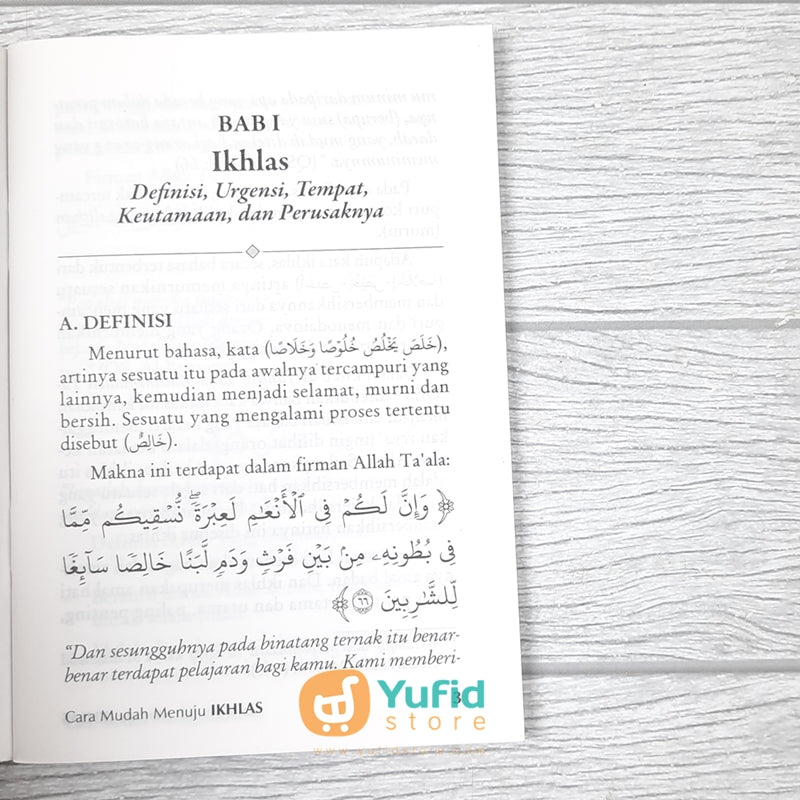 BAB I
Ikhlas
Definisi, Urgensi, Tempat,
Keutamaan, dan Perusaknya
A. DEFINISI
Menurut bahasa, kata (خَلَصَ يَخْلُصُ خُلُوْصًا وَخَلَاصًا),
artinya sesuatu itu pada awalnya tercampuri yang
lainnya, kemudian menjadi selamat, murni dan
bersih. Sesuatu yang mengalami proses tertentu
disebut (خَالِصٌ).
Makna ini terdapat dalam firman Allah Ta'ala:
﴿ وَإِنَّ لَكُمْ فِي ٱلْأَنْعَٰمِ لَعِبْرَةً ۖ نُّسْقِيكُم مِّمَّا
فِي بُطُونِهِۦ مِنۢ بَيْنِ فَرْثٍ وَدَمٍ لَّبَنًا خَالِصًا سَآئِغًا
لِّلشَّٰرِبِينَ ٦٦ ﴾
“Dan sesungguhnya pada binatang ternak itu benar-
benar terdapat pelajaran bagi kamu. Kami memberi-
Cara Mudah Menuju IKHLAS
3
Yufid
store